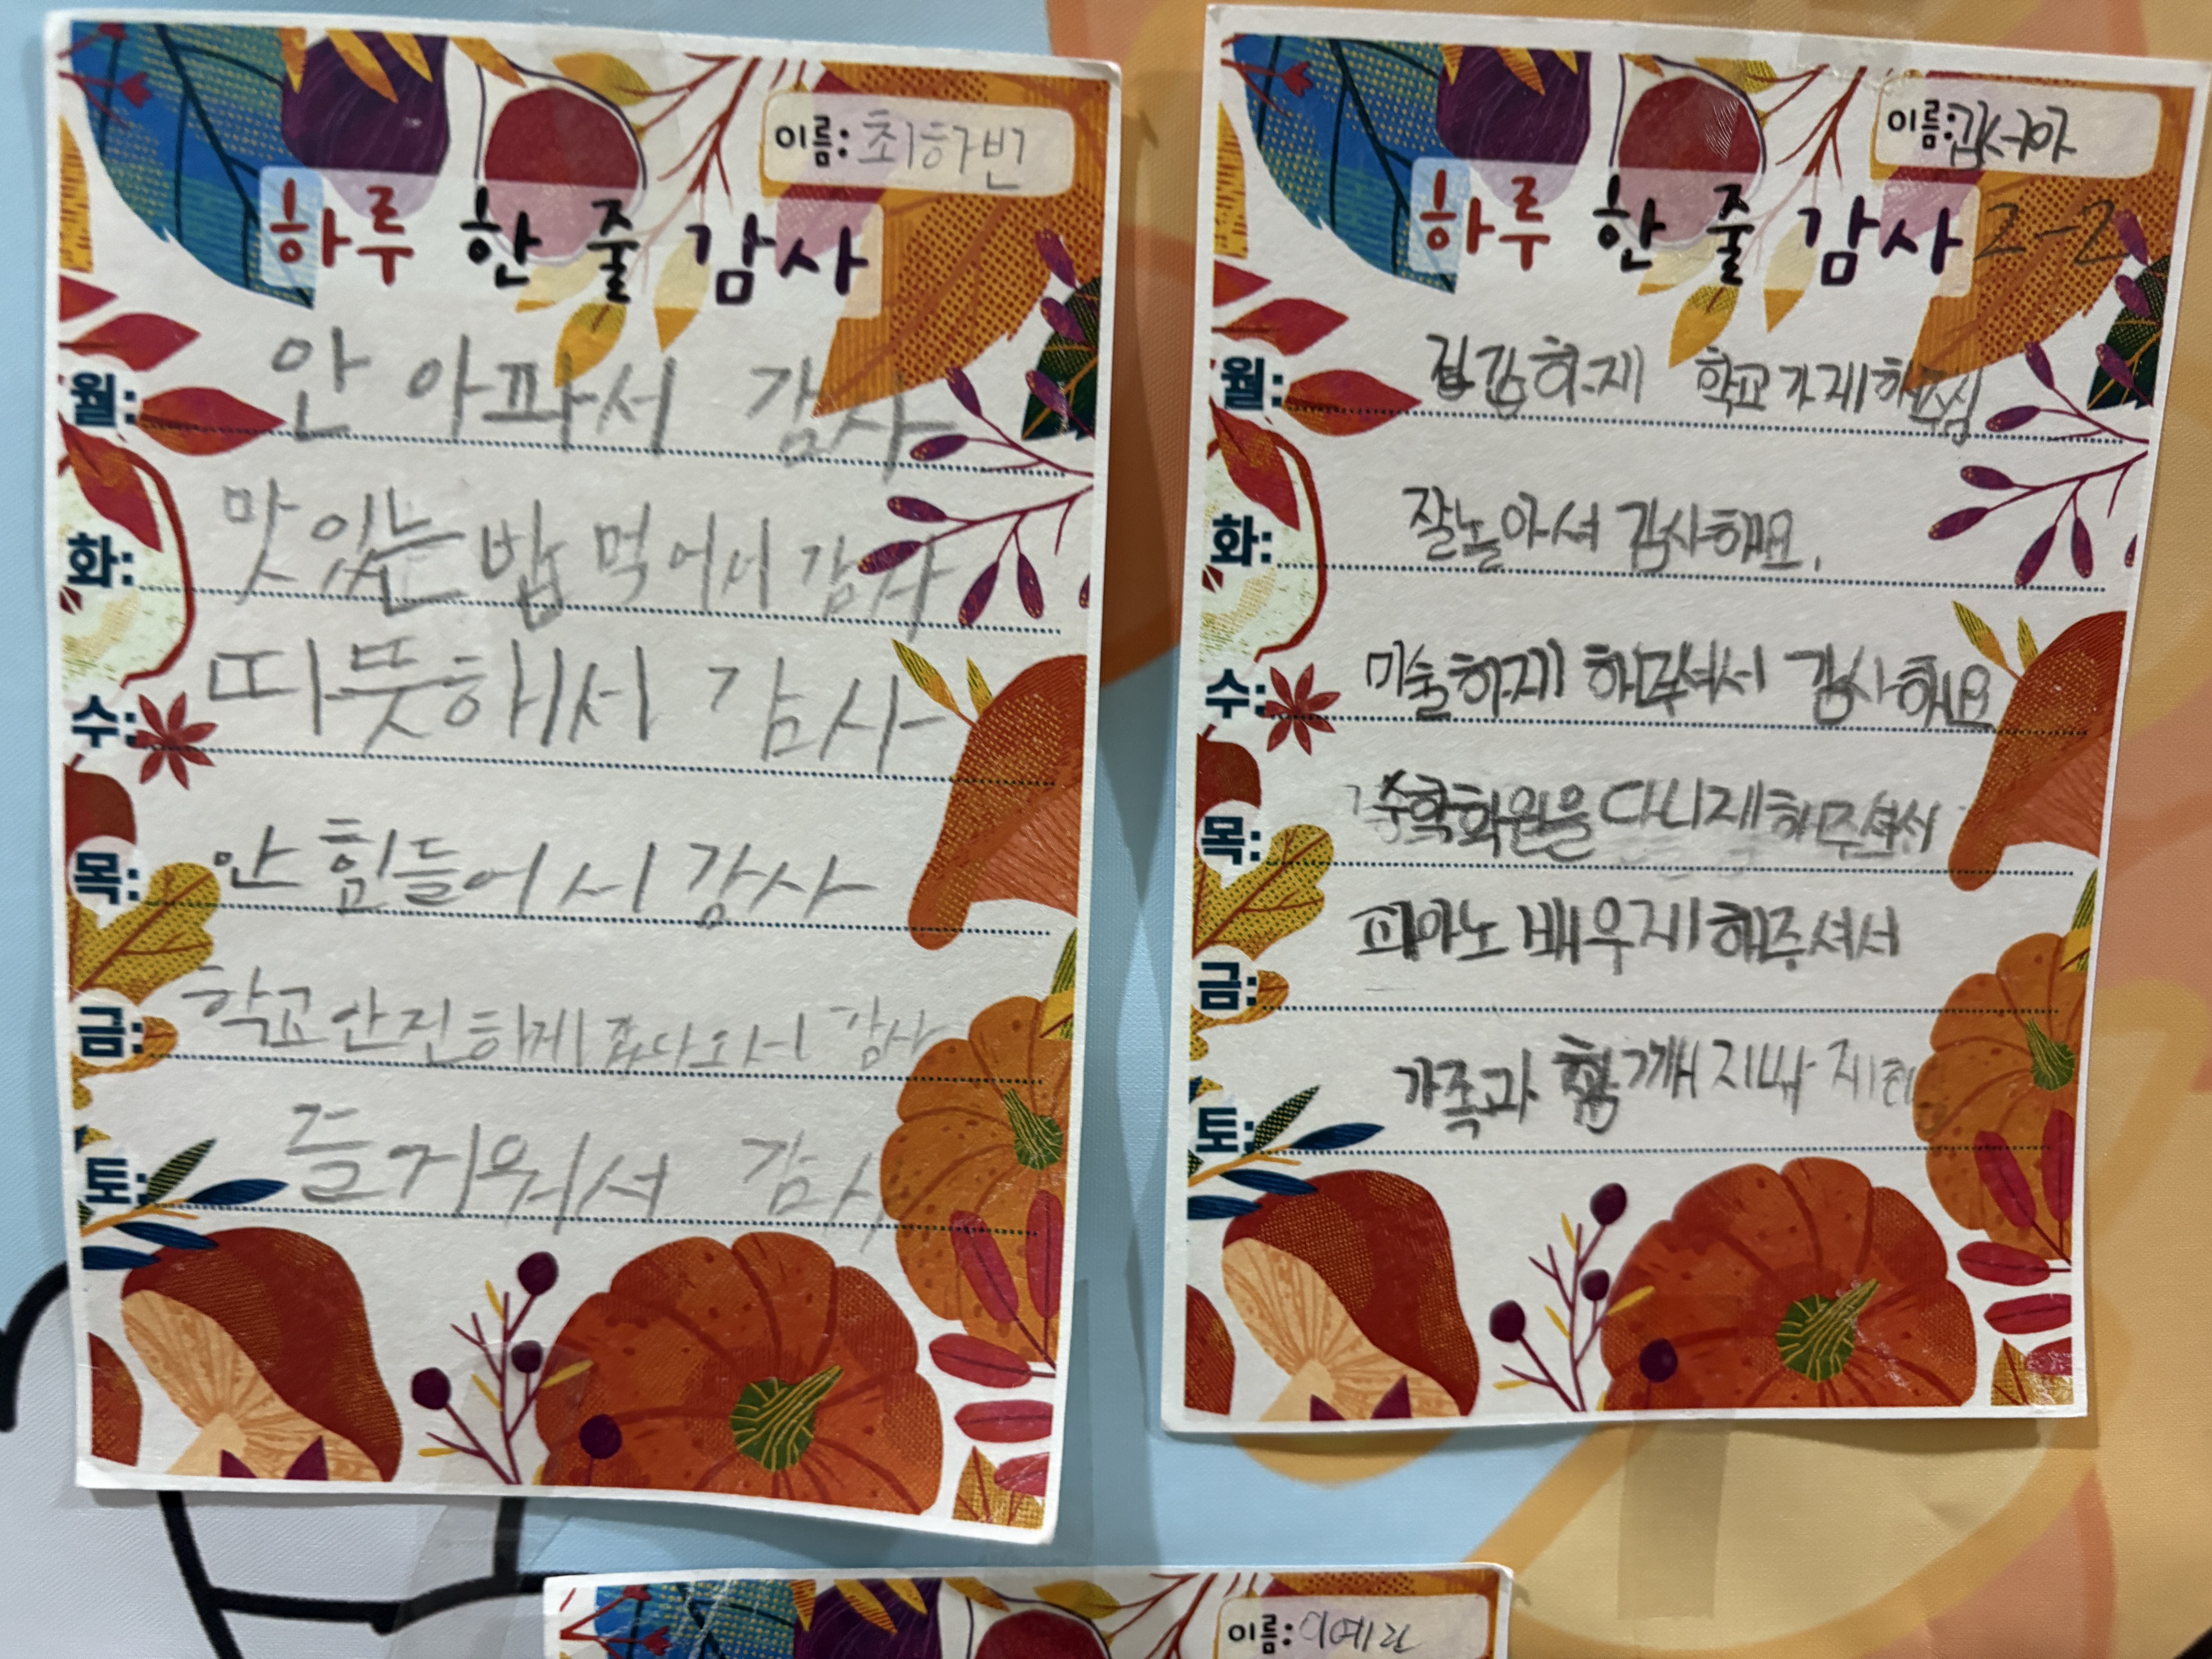 이름: 최하빈
하루 한 줄 감사
월: 안 아파서 감사
화: 맛있는 밥 먹어서 감사
수: 따뜻해서 감사
목: 안 힘들어서 감사
금: 학교 안전하게 갔다 오서 감사
토: 즐거워서 감사
이름: 김서아
하루 한 줄 감사 2-2
월: 학교가게해주심
화: 잘놀아셔 감사해요.
수: 미술하게 해주셔서 감사해요
목: 다니게해주셔서
금: 피아노 배우게해주셔서
토: 가족과 함께
이름: 이예란